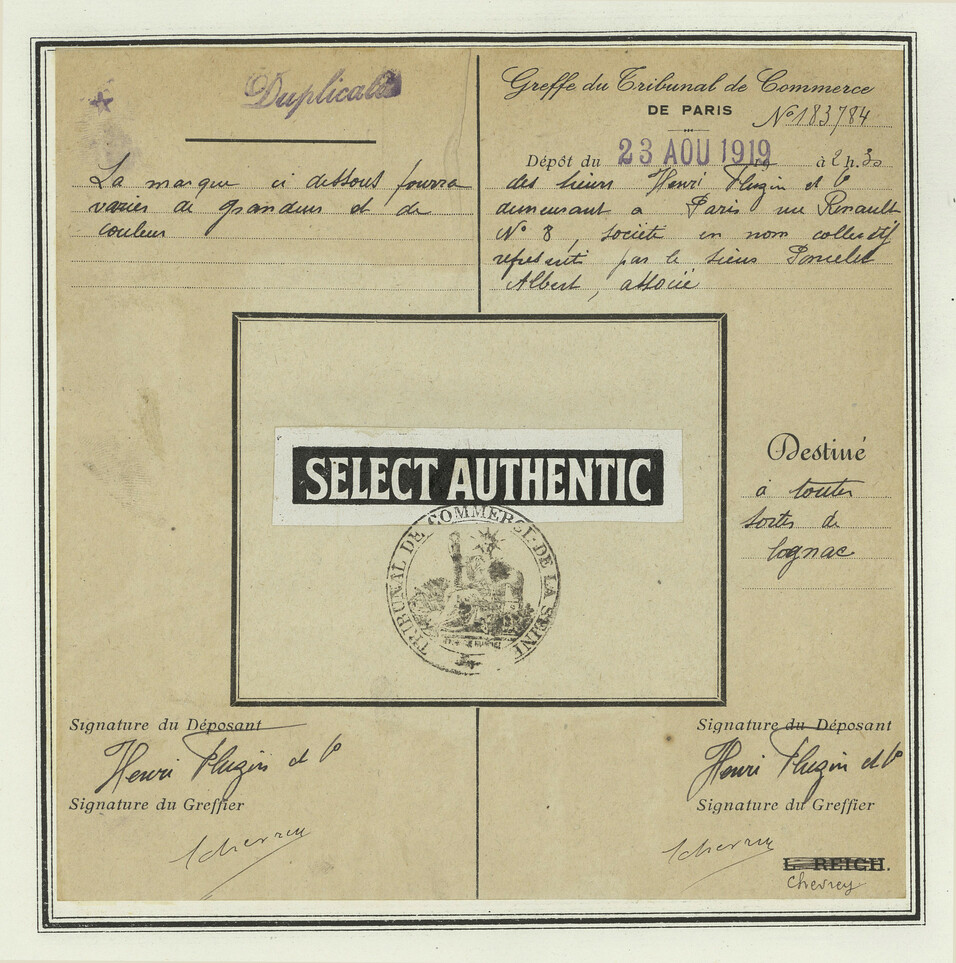 Duplicata
La marque ci dessous pourra
varier de grandeur et de
couleur
Greffe du Tribunal de Commerce
DE PARIS
No 183784
Dépôt du 23 AOU 1919 à 2 h. 30
des sieurs Henri Plugin et Co
demeurant a Paris rue Renault
No 8, société en nom collectif
représenté par le sieur
Albert, associé
SELECT AUTHENTIC
TRIBUNAL DE COMMERCE DE LA SEINE
Destiné
à toutes
sortes de
Cognac
Signature du Déposant
Henri Plugin et Co
Signature du Greffier
Chevrey
Signature du Déposant
Henri Plugin et Co
Signature du Greffier
Chevrey
L. REICH.
Chevrey